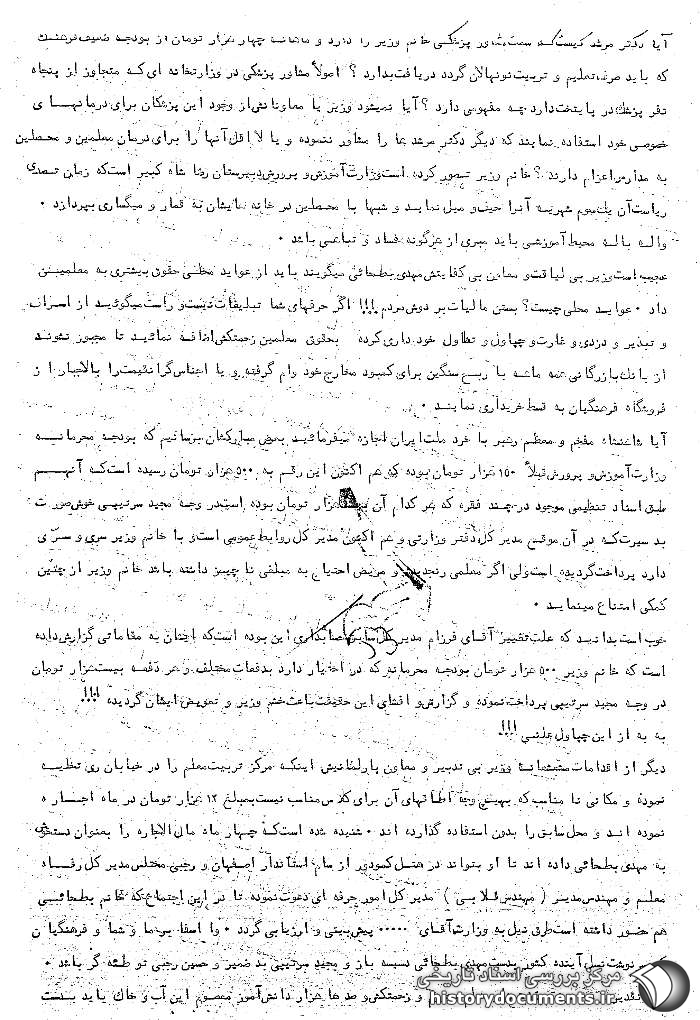 آیا دکتر مرشد کیست که سمت مشاور پزشکی خانم وزیر را دارد و ماهانه چهار هزار تومان از بودجه ضعیف فرهنگ
که باید صرف تعلیم و تربیت نونهالان گردد دریافت بدارد ؟ اصولاً مشاور پزشکی در وزارتخانه ای که متجاوز از پنجاه
نفر پزشک در پایتخت دارد چه مفهومی دارد ؟ آیا نمیشود وزیر یا معاونانش از وجود این پزشکان برای درمانهای
خصوصی خود استفاده نمایند که دیگر دکتر مرشد ها را مشاور ننموده و یا لااقل آنها را برای درمان معلمین و محصلین
به مدارس اعزام دارند ؟ خانم وزیر تصور کرده است وزارت آموزش و پرورش دبیرستان رضا شاه کبیر است که زمان تصدی
ریاست آن شهریه آنرا حیف و میل نماید و شبها با محصلین در خانه هایشان به قمار و میگساری بپردازد ۰
واله باله محیط آموزشی باید مبری از هرگونه فساد و تباهی باشد ۰
عجیب است وزیر بی لیاقت و معاون بی کفایتش مهدی بطحائی میگویند باید از عواید محلی حقوق بیشتری به معلمین
داد ۰ عواید محلی چیست؟ بستن مالیات بر دوش مردم !!!! اگر حرفهای شما تبلیغات نیست و راست میگوئید از اسراف
و تبذیر و دزدی و غارت و چپاول و تطاول خود داری کرده بحقوق معلمین زحمتکش اضافه نمائید تا مجبور نشوند
از بانک بازرگانی همه ماهه با ربح سنگین برای کمبود مخارج خود وام گرفته و یا اجناس گرانقیمت را بالاجبار از
فروشگاه فرهنگیان به قسط خریداری نمایند ۰
آیا شاهنشاه مفخم و معظم رهبر با خرد ملت ایران اجازه میفرمائید بعرض مبارکشان برسانیم که بودجه محرمانه
وزارت آموزش و پرورش قبلاً ۱۵۰ هزار تومان بوده که هم اکنون این رقم به ۵۰۰ هزار تومان رسیده است که آنهم
طبق اسناد تنظیمی موجود در چند فقره که هر کدام آن هزار تومان بوده است در وجه مجید سرتیپی خوش صورت
بد سیرت که در آن موقع مدیر کل دفتر وزارتی و هم اکنون مدیر کل روابط عمومی است و با خانم وزیر سری و سری
دارد پرداخت گردیده است ولی اگر معلمی رنجدیده و مریض احتیاج به مبلغی ناچیز داشته باشد خانم وزیر از چنین
کمکی امتناع مینماید ۰
خوب است بدانید که علت تغییر آقای فرزام مدیر کل سابق حسابداری این بوده است که ایشان به مقاماتی گزارش داده
است که خانم وزیر ۵۰۰ هزار تومان بودجه محرمانه که در اختیار دارد بدفعات مختلف و هر دفعه بیست هزار تومان
در وجه مجید سرتیپی پرداخت نموده و گزارش و افشای این حقیقت باعث خشم وزیر و تعویض ایشان گردیده !!!!
به به از این چپاول علنی !!!
دیگر از اقدامات وزیر بی تدبیر و معاون پارلمانیش اینکه مرکز تربیت معلم را در خیابان ری تخلیه
نموده و مکانی نا مناسب که بهیچوجه اطاقهای آن برای کلاس مناسب نیست بمبلغ ۱۲ هزار تومان در ماه اجاره
نموده اند و محل سابق را بدون استفاده گذارده اند ۰ شنیده شده است که چهار ماه مال الاجاره را بعنوان دستخوش
به مهدی بطحائی داده اند تا او بتواند در هتل کمودور از سام استاندار اصفهان و رجبی مختلس مدیر کل رفاه
معلم و مهندس مدینر ( مهندس قلابی ) مدیر کل امور حرفه ای دعوت نموده تا در این اجتماع که خانم بطحائی
هم حضور داشته است طرق نیل به وزارت آقای ۰۰۰۰۰ پیش بینی و ارزیابی گردد ۰ وا اسفا بر ما و شما و فرهنگیان
نوشت نسل آینده کشور بدست مهدی بطحائی دسیسه باز و مجید سرتیپی بد ضمیر و حسین رجبی توطئه گر باشد ۰
و زحمتکش و صد ها هزار دانش آموز معصوم این آب و خاک باید بدست
مرکز بررسی اسناد تاریخی
historydocuments.ir